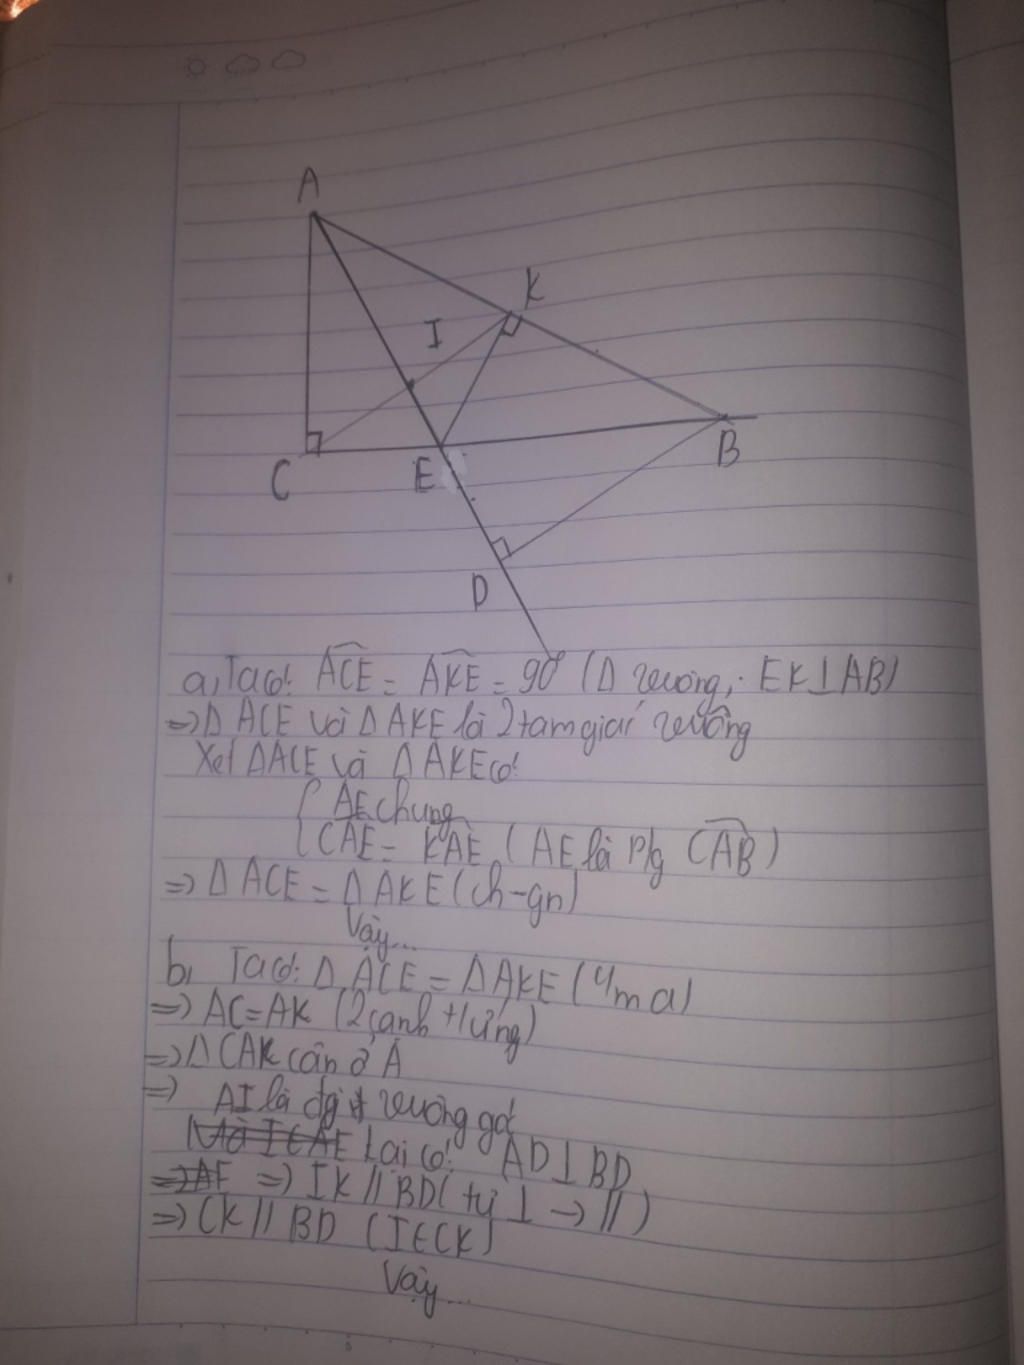 A
K
I
C
E
B
D
a, Ta có: ACE = AKE = 90° (Δ vuông; EK⊥AB)
=> Δ ACE và Δ AKE là 2 tam giác vuông
Xét ΔACE và ΔAKE có:
AE chung
CAE = KAE (AE là p/g CAB)
=> Δ ACE = Δ AKE (ch-gn)
Vậy...
b, Ta có: Δ ACE = Δ AKE (cma)
=> AC = AK (2 cạnh t/ứng)
=> Δ CAK cân ở A
=> AI là đg vuông góc
Lại có: AD⊥BD
=> IK // BD (từ ⊥ → //)
=> CK // BD (I∈CK)
Vậy...